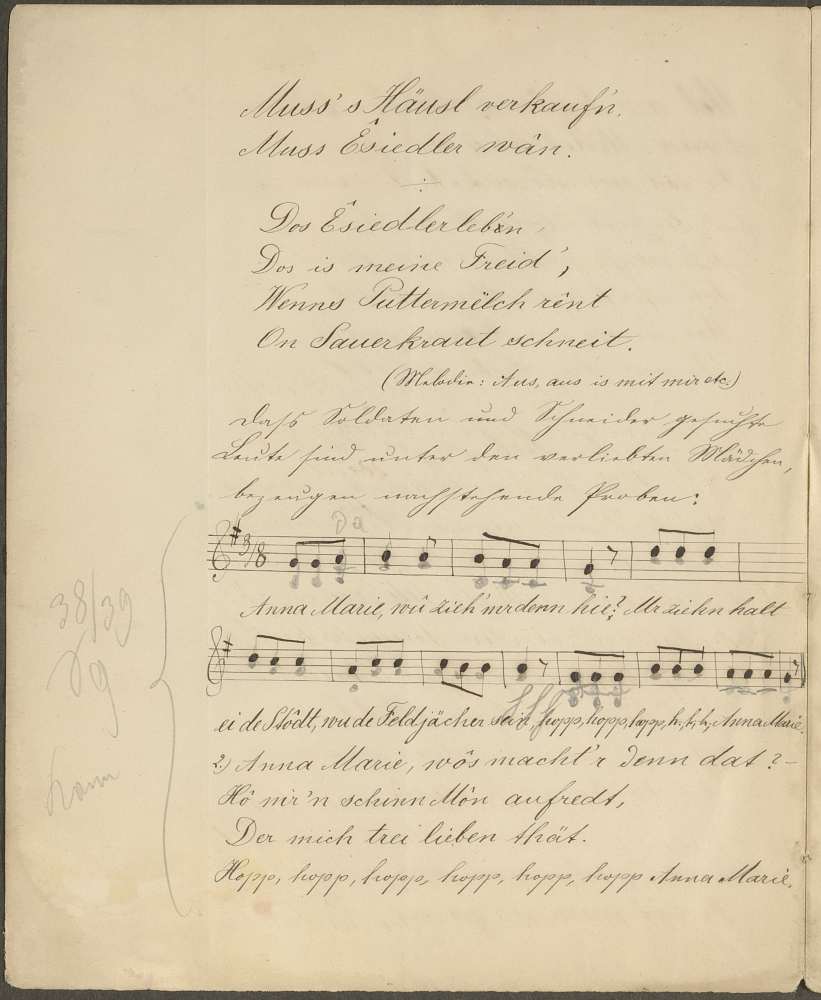 Muss' s Häusl verkauf'n.
Muss Êsiedler wân.
Dos Êsiedlerleb'n,
Dos is meine Freid',
Wenns Puttermëlch rênt
On Sauerkraut schneit.
(Melodie: Aus, aus is mit mir etc.)
Dass Soldaten und Schneider gesuchte
Leute sind unter den verliebten Mädchen,
bezeugen nachstehende Proben:
3/8
Anna Marie, wû zieh' mr denn hie? Mr ziehn halt
38/39
ei de Stôdt, wu de Feldjächer sein, hopp, hopp, hopp, h., h., h., Anna Marie.
2.) Anna Marie, wôs macht'r denn dat? –
Hô mir'n schinn Môn aufredt,
Der mich trei lieben thät.
Hopp, hopp, hopp, hopp, hopp, hopp Anna Marie.